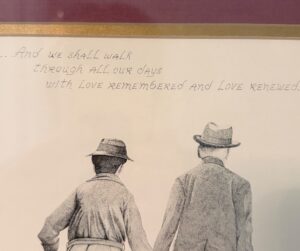 ... And we shall walk
through all our days
with love remembered and love renewed.